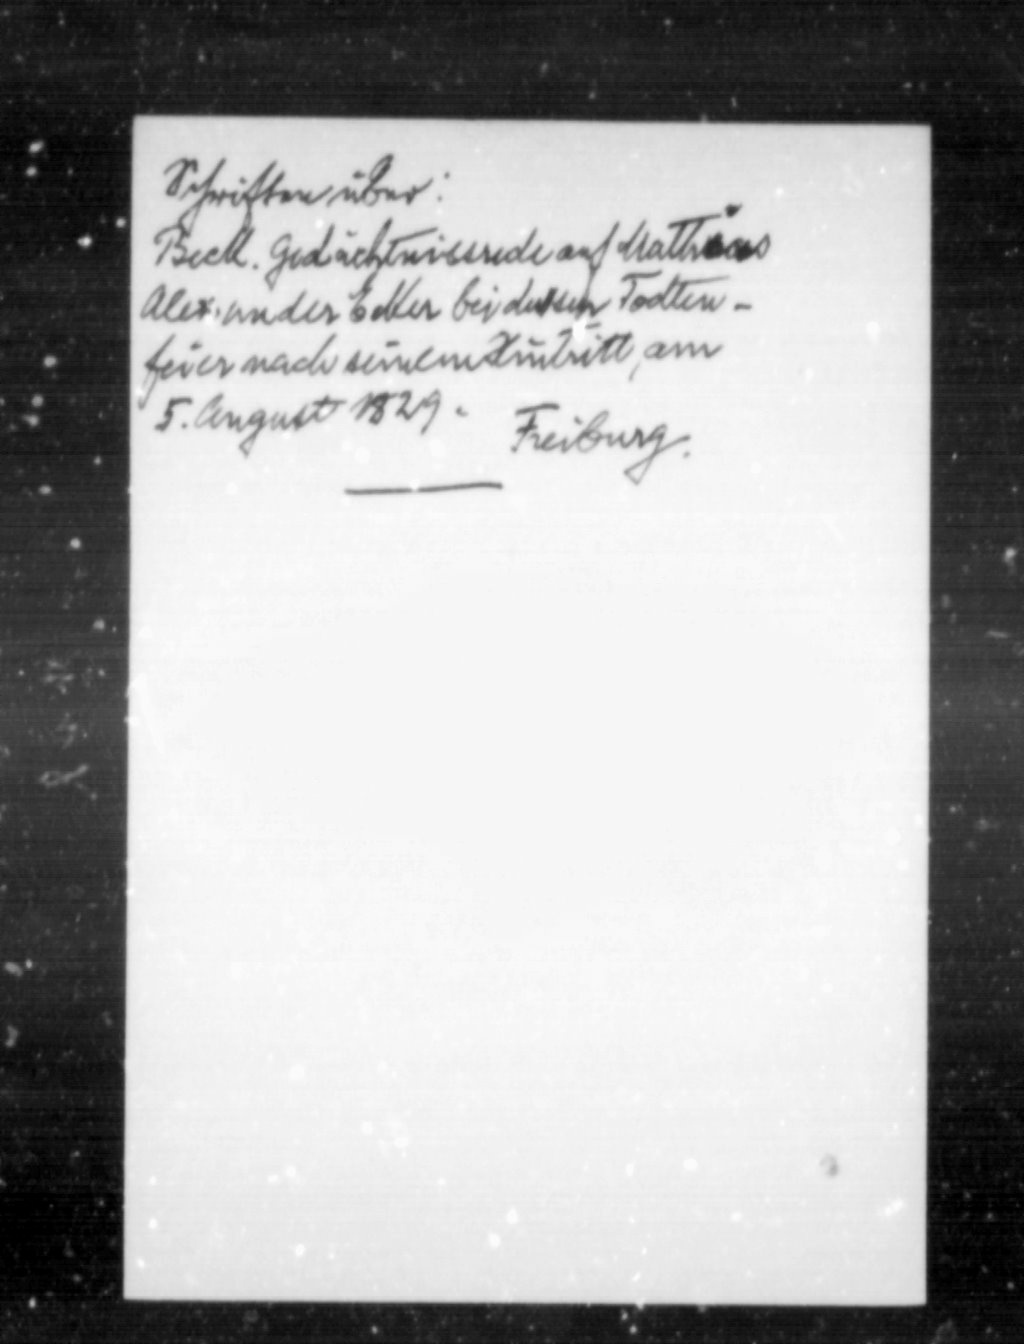 Schriften über:
Beck. Gedächtnissrede auf Mathias
Alexander Ecker bei dessen Todten-
feier nach seinem Hintritt, am
5. August 1829.
Freiburg.